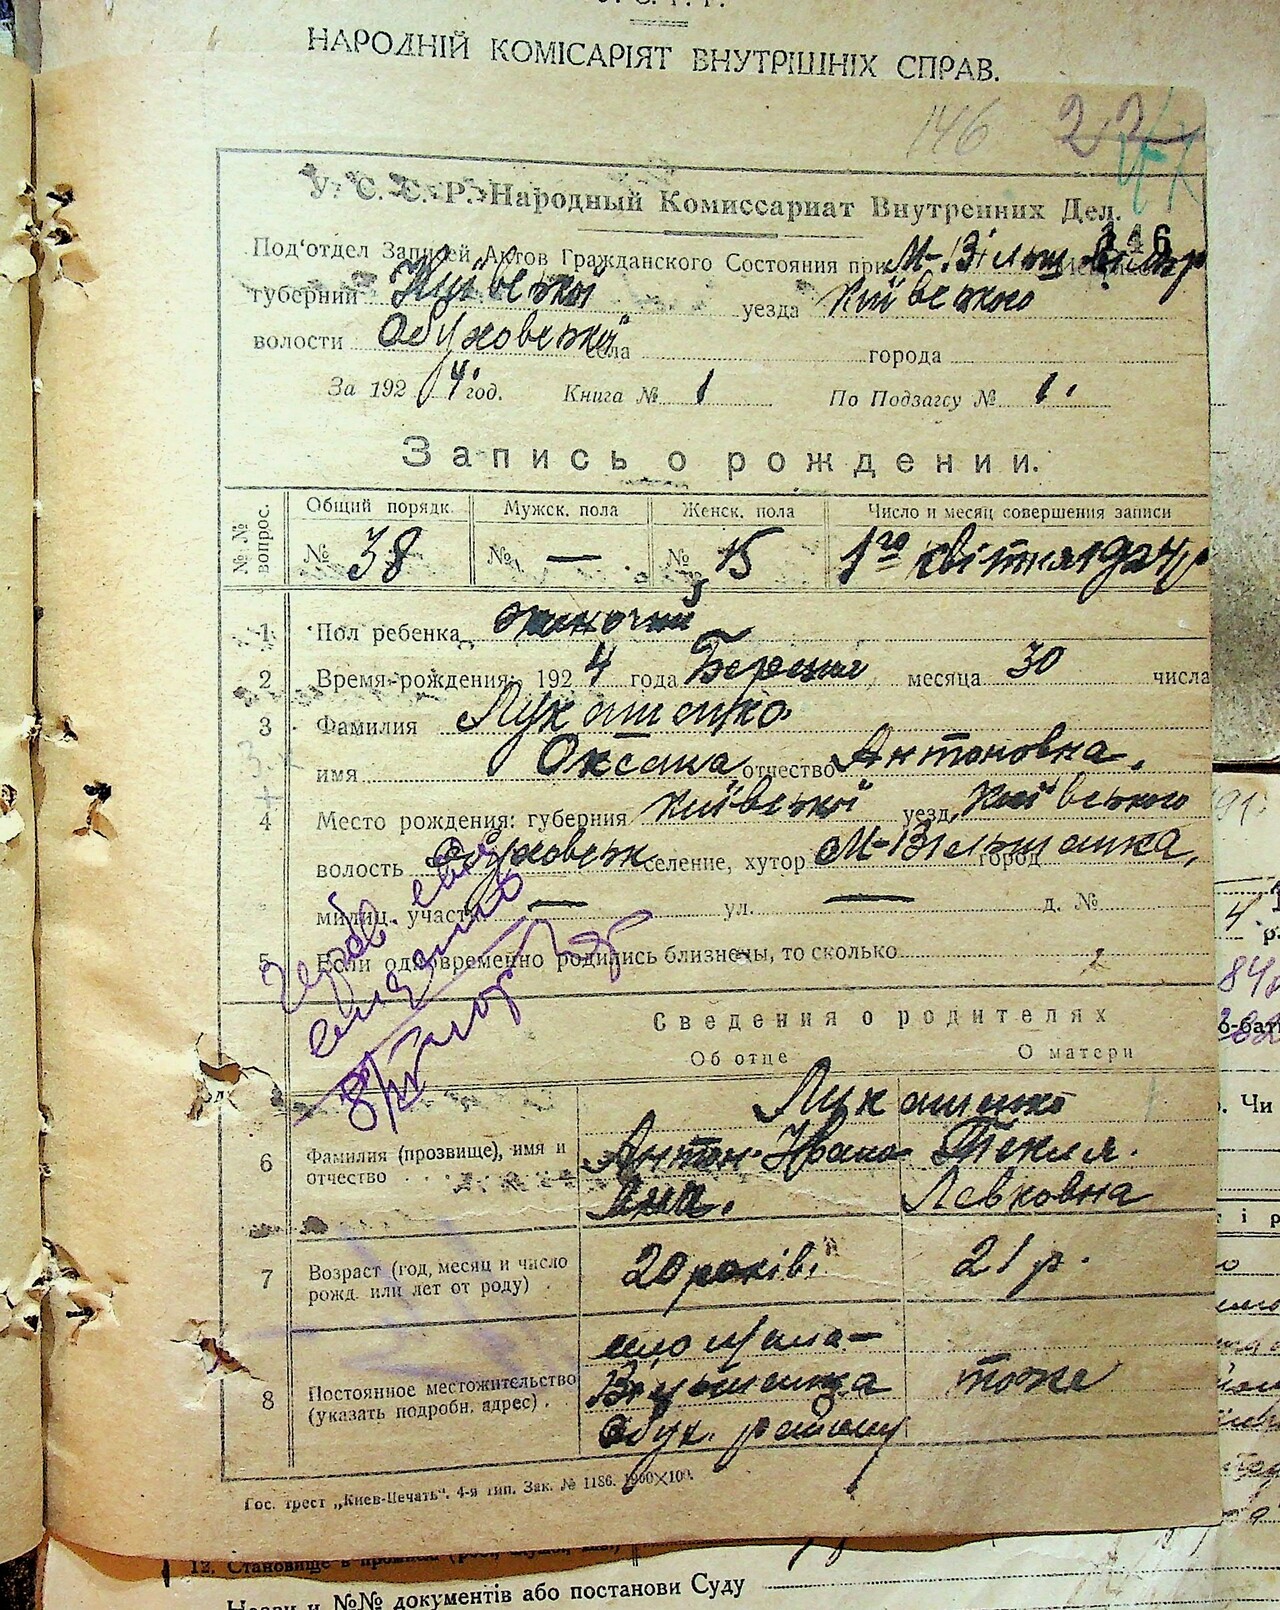 НАРОДНІЙ КОМІСАРІЯТ ВНУТРІШНІХ СПРАВ.
146 22
У. С. С. Р. Народный Комиссариат Внутренних Дел.
146
Под'отдел Записей Актов Гражданского Состояния при М-Вільш
губернии Київської уезда Київського
волости Обуховської села города
За 1924 год. Книга № 1 По Подзагсу № 1.
Запись о рождении.
№ № вопрос. Общий порядк. Мужск. пола Женск. пола Число и месяц совершения записи
№ 38 № — № 15 1го квітня 1924 р
1 Пол ребенка жіночий
2 Время рождения: 1924 года Березня месяца 30 числа
3 Фамилия Лукашенко
имя Оксана отчество Антоновна.
4 Место рождения: губерния Київської уезд Київського
волость Обуховськ селение, хутор М-Вільшанка, город
милиц. участ. — ул. — д. №
5 Если одновременно родились близнецы, то сколько
Сведения о родителях
Об отце О матери
Лукашенко
6 Фамилия (прозвище), имя и отчество Антон Ивано- Текля.
Левковна
7 Возраст (год, месяц и число рожд. или лет от роду) 20 років. 21 р.
8 Постоянное местожительство (указать подробн. адрес) село Мала- Вільшанка Обух. району тоже
Гос. трест „Киев-Печать". 4-я тип. Зак. № 1186. 1900×100.
12. Становище в
Назви и №№ документів або постанови Суду